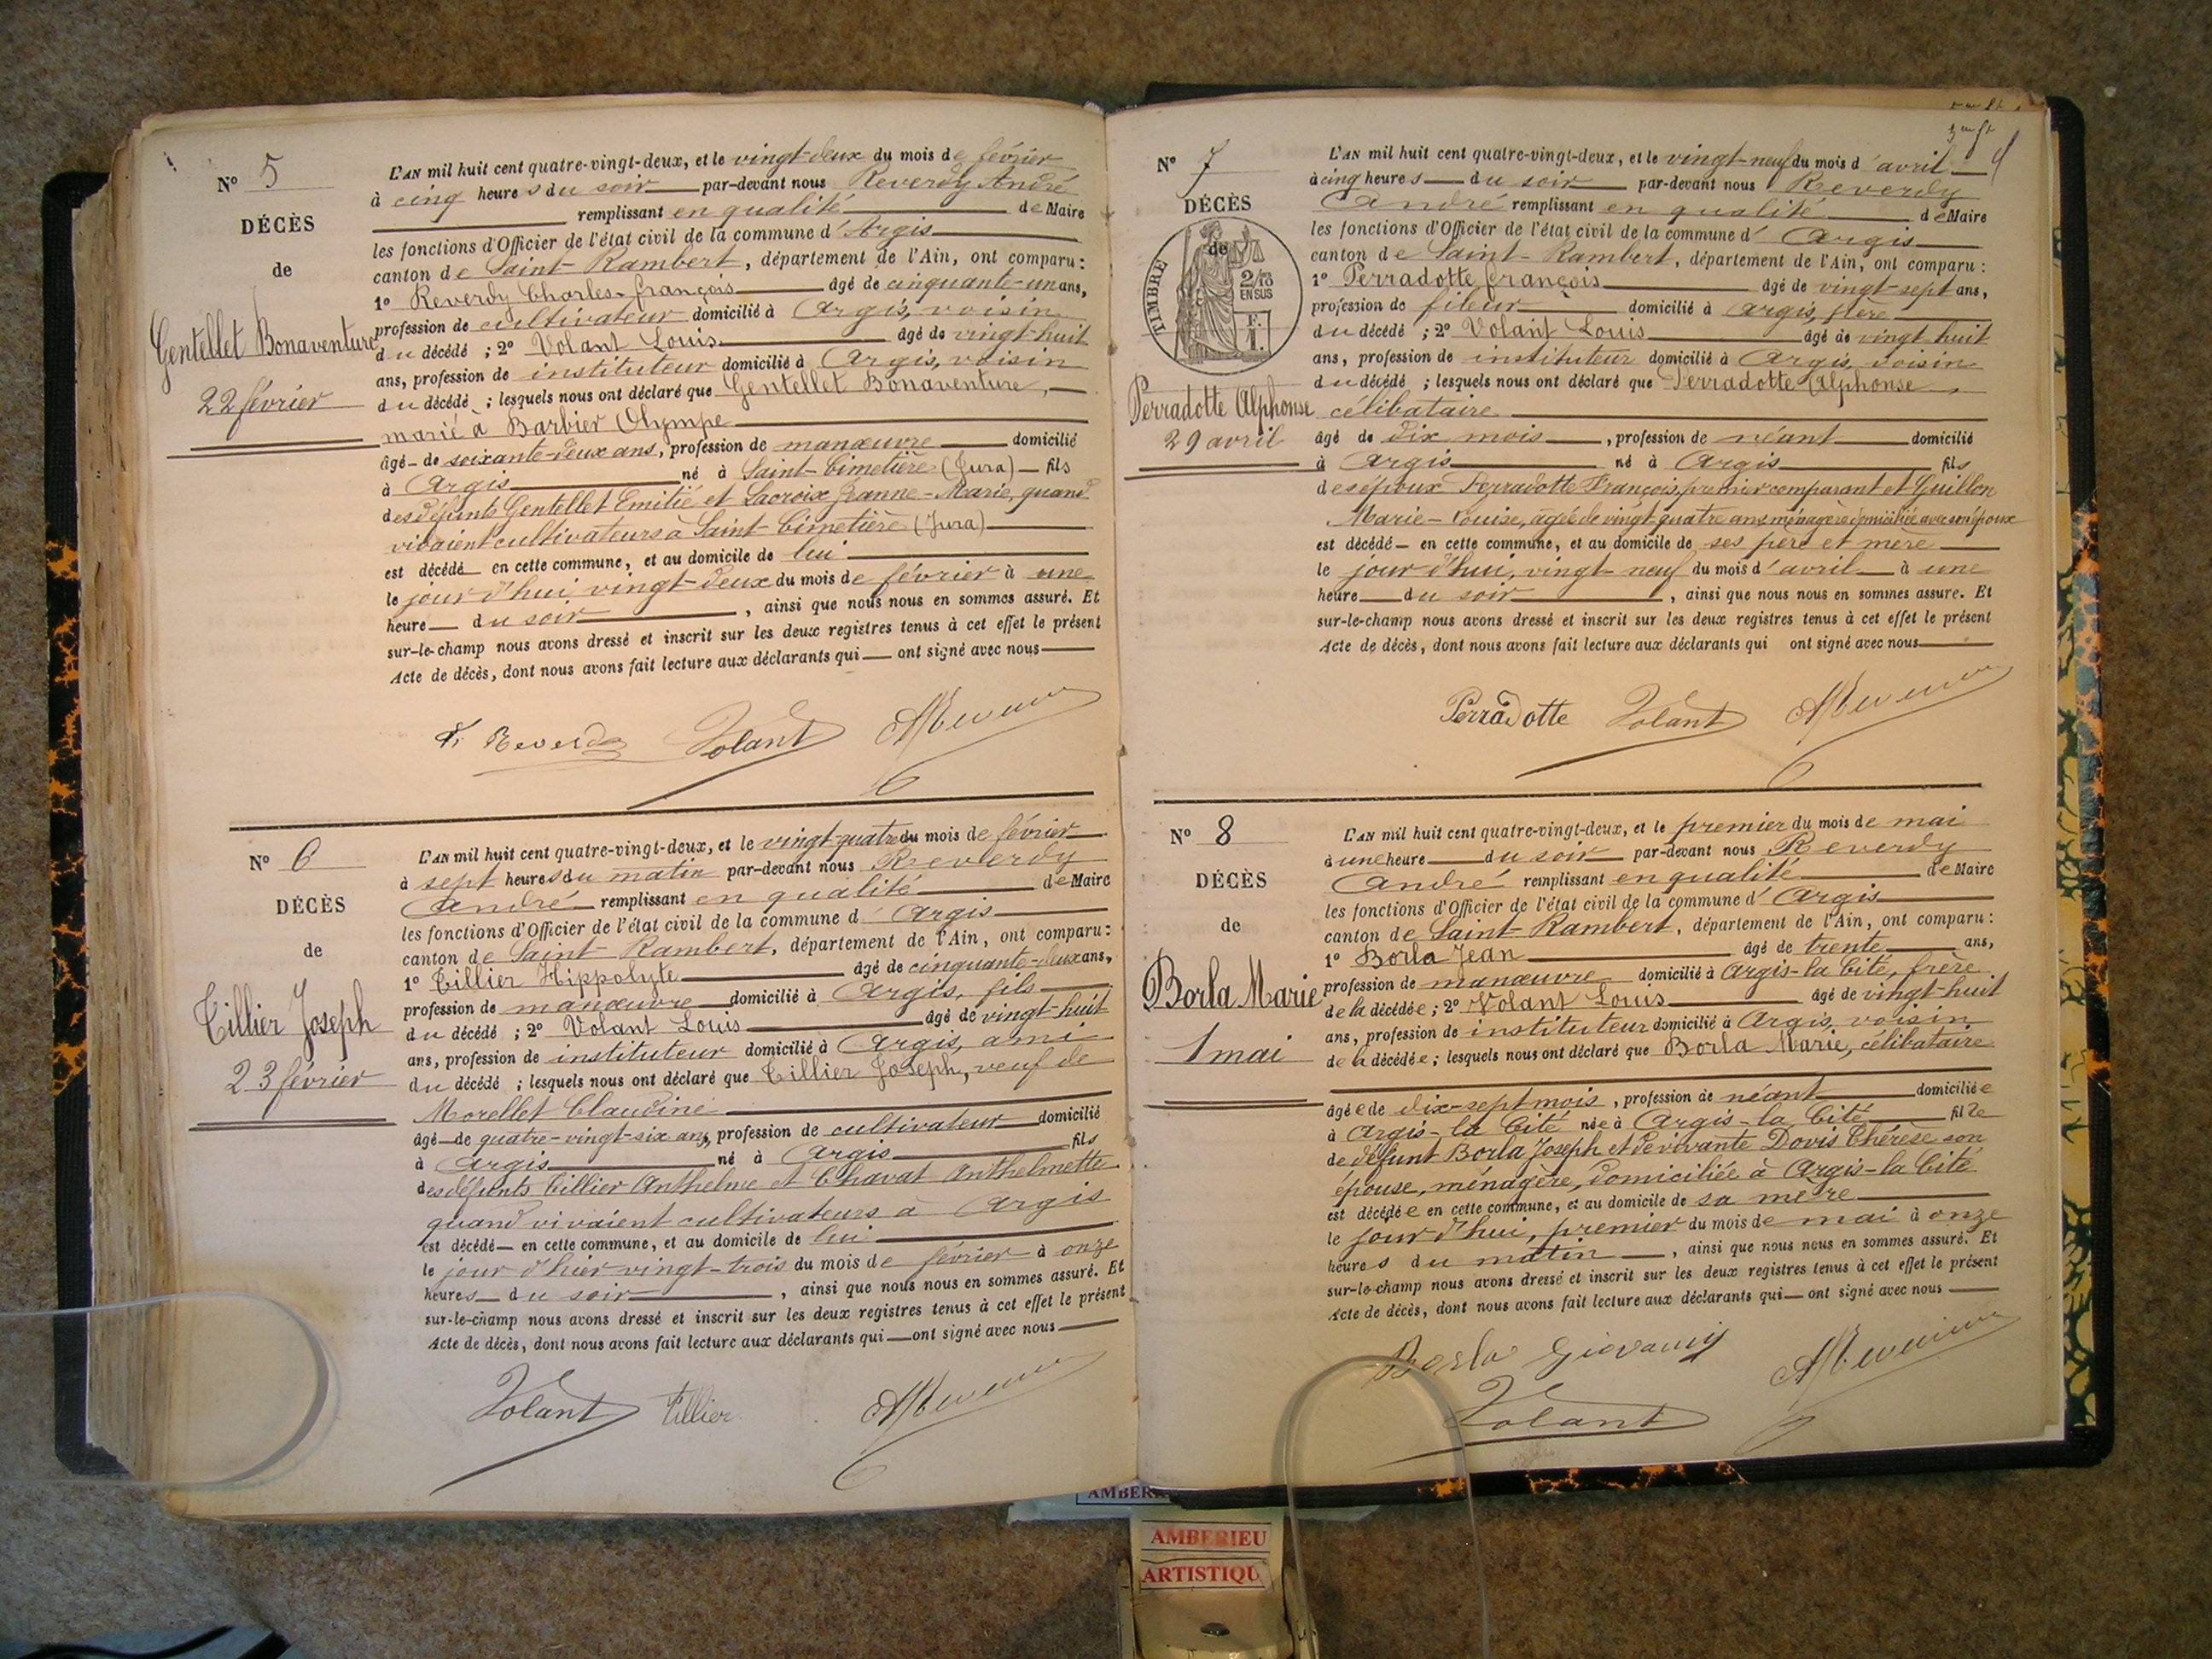 N° 5
DÉCÈS
de
Gentellet Bonaventure
22 février
L'AN mil huit cent quatre-vingt-deux, et le vingt-deux du mois de février
à cinq heures du soir par-devant nous Reverdy André
remplissant en qualité de Maire
les fonctions d'Officier de l'état civil de la commune d'Argis
canton de Saint-Rambert, département de l'Ain, ont comparu :
1° Reverdy Charles-François âgé de cinquante-un ans,
profession de cultivateur domicilié à Argis, voisin
du décédé ; 2° Volant Louis âgé de vingt-huit
ans, profession de instituteur domicilié à Argis, voisin
du décédé ; lesquels nous ont déclaré que Gentellet Bonaventure,
marié à Barbier Olympe
âgé de soixante-deux ans, profession de manœuvre domicilié
à Argis né à Saint-Cimetière (Jura) fils
des défunts Gentellet Emilié et Lacroix Jeanne-Marie, quand
vivaient cultivateurs à Saint-Cimetière (Jura)
est décédé en cette commune, et au domicile de lui
le jour d'hui vingt-deux du mois de février à une
heure du soir, ainsi que nous nous en sommes assuré. Et
sur-le-champ nous avons dressé et inscrit sur les deux registres tenus à cet effet le présent
Acte de décès, dont nous avons fait lecture aux déclarants qui ont signé avec nous
Reverdy Volant
N° 6
DÉCÈS
de
Tillier Joseph
23 février
L'AN mil huit cent quatre-vingt-deux, et le vingt-quatre du mois de février
à sept heures du matin par-devant nous Reverdy
André remplissant en qualité de Maire
les fonctions d'Officier de l'état civil de la commune d'Argis
canton de Saint-Rambert, département de l'Ain, ont comparu :
1° Tillier Hippolyte âgé de cinquante-deux ans,
profession de manœuvre domicilié à Argis, fils
du décédé ; 2° Volant Louis âgé de vingt-huit
ans, profession de instituteur domicilié à Argis, ami
du décédé ; lesquels nous ont déclaré que Tillier Joseph, veuf de
Morellet Claudine
âgé de quatre-vingt-six ans, profession de cultivateur domicilié
à Argis né à Argis fils
des défunts Tillier Anthelme et Chavat Anthelmette
quand vivaient cultivateurs à Argis
est décédé en cette commune, et au domicile de lui
le jour d'hier vingt-trois du mois de février à onze
heures du soir, ainsi que nous nous en sommes assuré. Et
sur-le-champ nous avons dressé et inscrit sur les deux registres tenus à cet effet le présent
Acte de décès, dont nous avons fait lecture aux déclarants qui ont signé avec nous
Volant Tillier
N° 7
DÉCÈS
de
TIMBRE
2/10
EN SUS
Perradotte Alphonse
29 avril
L'AN mil huit cent quatre-vingt-deux, et le vingt-neuf du mois d'avril
à cinq heures du soir par-devant nous Reverdy
André remplissant en qualité de Maire
les fonctions d'Officier de l'état civil de la commune d'Argis
canton de Saint-Rambert, département de l'Ain, ont comparu :
1° Perradotte François âgé de vingt-sept ans,
profession de fileur domicilié à Argis, père
du décédé ; 2° Volant Louis âgé de vingt huit
ans, profession de instituteur domicilié à Argis, voisin
du décédé ; lesquels nous ont déclaré que Perradotte Alphonse,
célibataire
âgé de dix mois, profession de néant domicilié
à Argis né à Argis fils
des époux Perradotte François, premier comparant et Guillon
Marie-Louise, âgée de vingt quatre ans ménagère domiciliée avec son époux
est décédé en cette commune, et au domicile de ses père et mère
le jour d'hui, vingt-neuf du mois d'avril à une
heure du soir, ainsi que nous nous en sommes assuré. Et
sur-le-champ nous avons dressé et inscrit sur les deux registres tenus à cet effet le présent
Acte de décès, dont nous avons fait lecture aux déclarants qui ont signé avec nous
Perradotte Volant
N° 8
DÉCÈS
de
Borla Marie
1 mai
L'AN mil huit cent quatre-vingt-deux, et le premier du mois de mai
à une heure du soir par-devant nous Reverdy
André remplissant en qualité de Maire
les fonctions d'Officier de l'état civil de la commune d'Argis
canton de Saint-Rambert, département de l'Ain, ont comparu :
1° Borla Jean âgé de trente ans,
profession de manœuvre domicilié à Argis-la Cité, frère
de la décédée ; 2° Volant Louis âgé de vingt-huit
ans, profession de instituteur domicilié à Argis, voisin
de la décédée ; lesquels nous ont déclaré que Borla Marie, célibataire
âgée de dix-sept mois, profession de néant domiciliée
à Argis-la Cité née à Argis-la Cité fille
de défunt Borla Joseph et de vivante Dovis Thérèse son
épouse, ménagère, domiciliée à Argis-la Cité
est décédée en cette commune, et au domicile de sa mère
le jour d'hui, premier du mois de mai à onze
heures du matin, ainsi que nous nous en sommes assuré. Et
sur-le-champ nous avons dressé et inscrit sur les deux registres tenus à cet effet le présent
Acte de décès, dont nous avons fait lecture aux déclarants qui ont signé avec nous
Borla Giovanni
Volant
AMBERIEU
ARTISTIQU